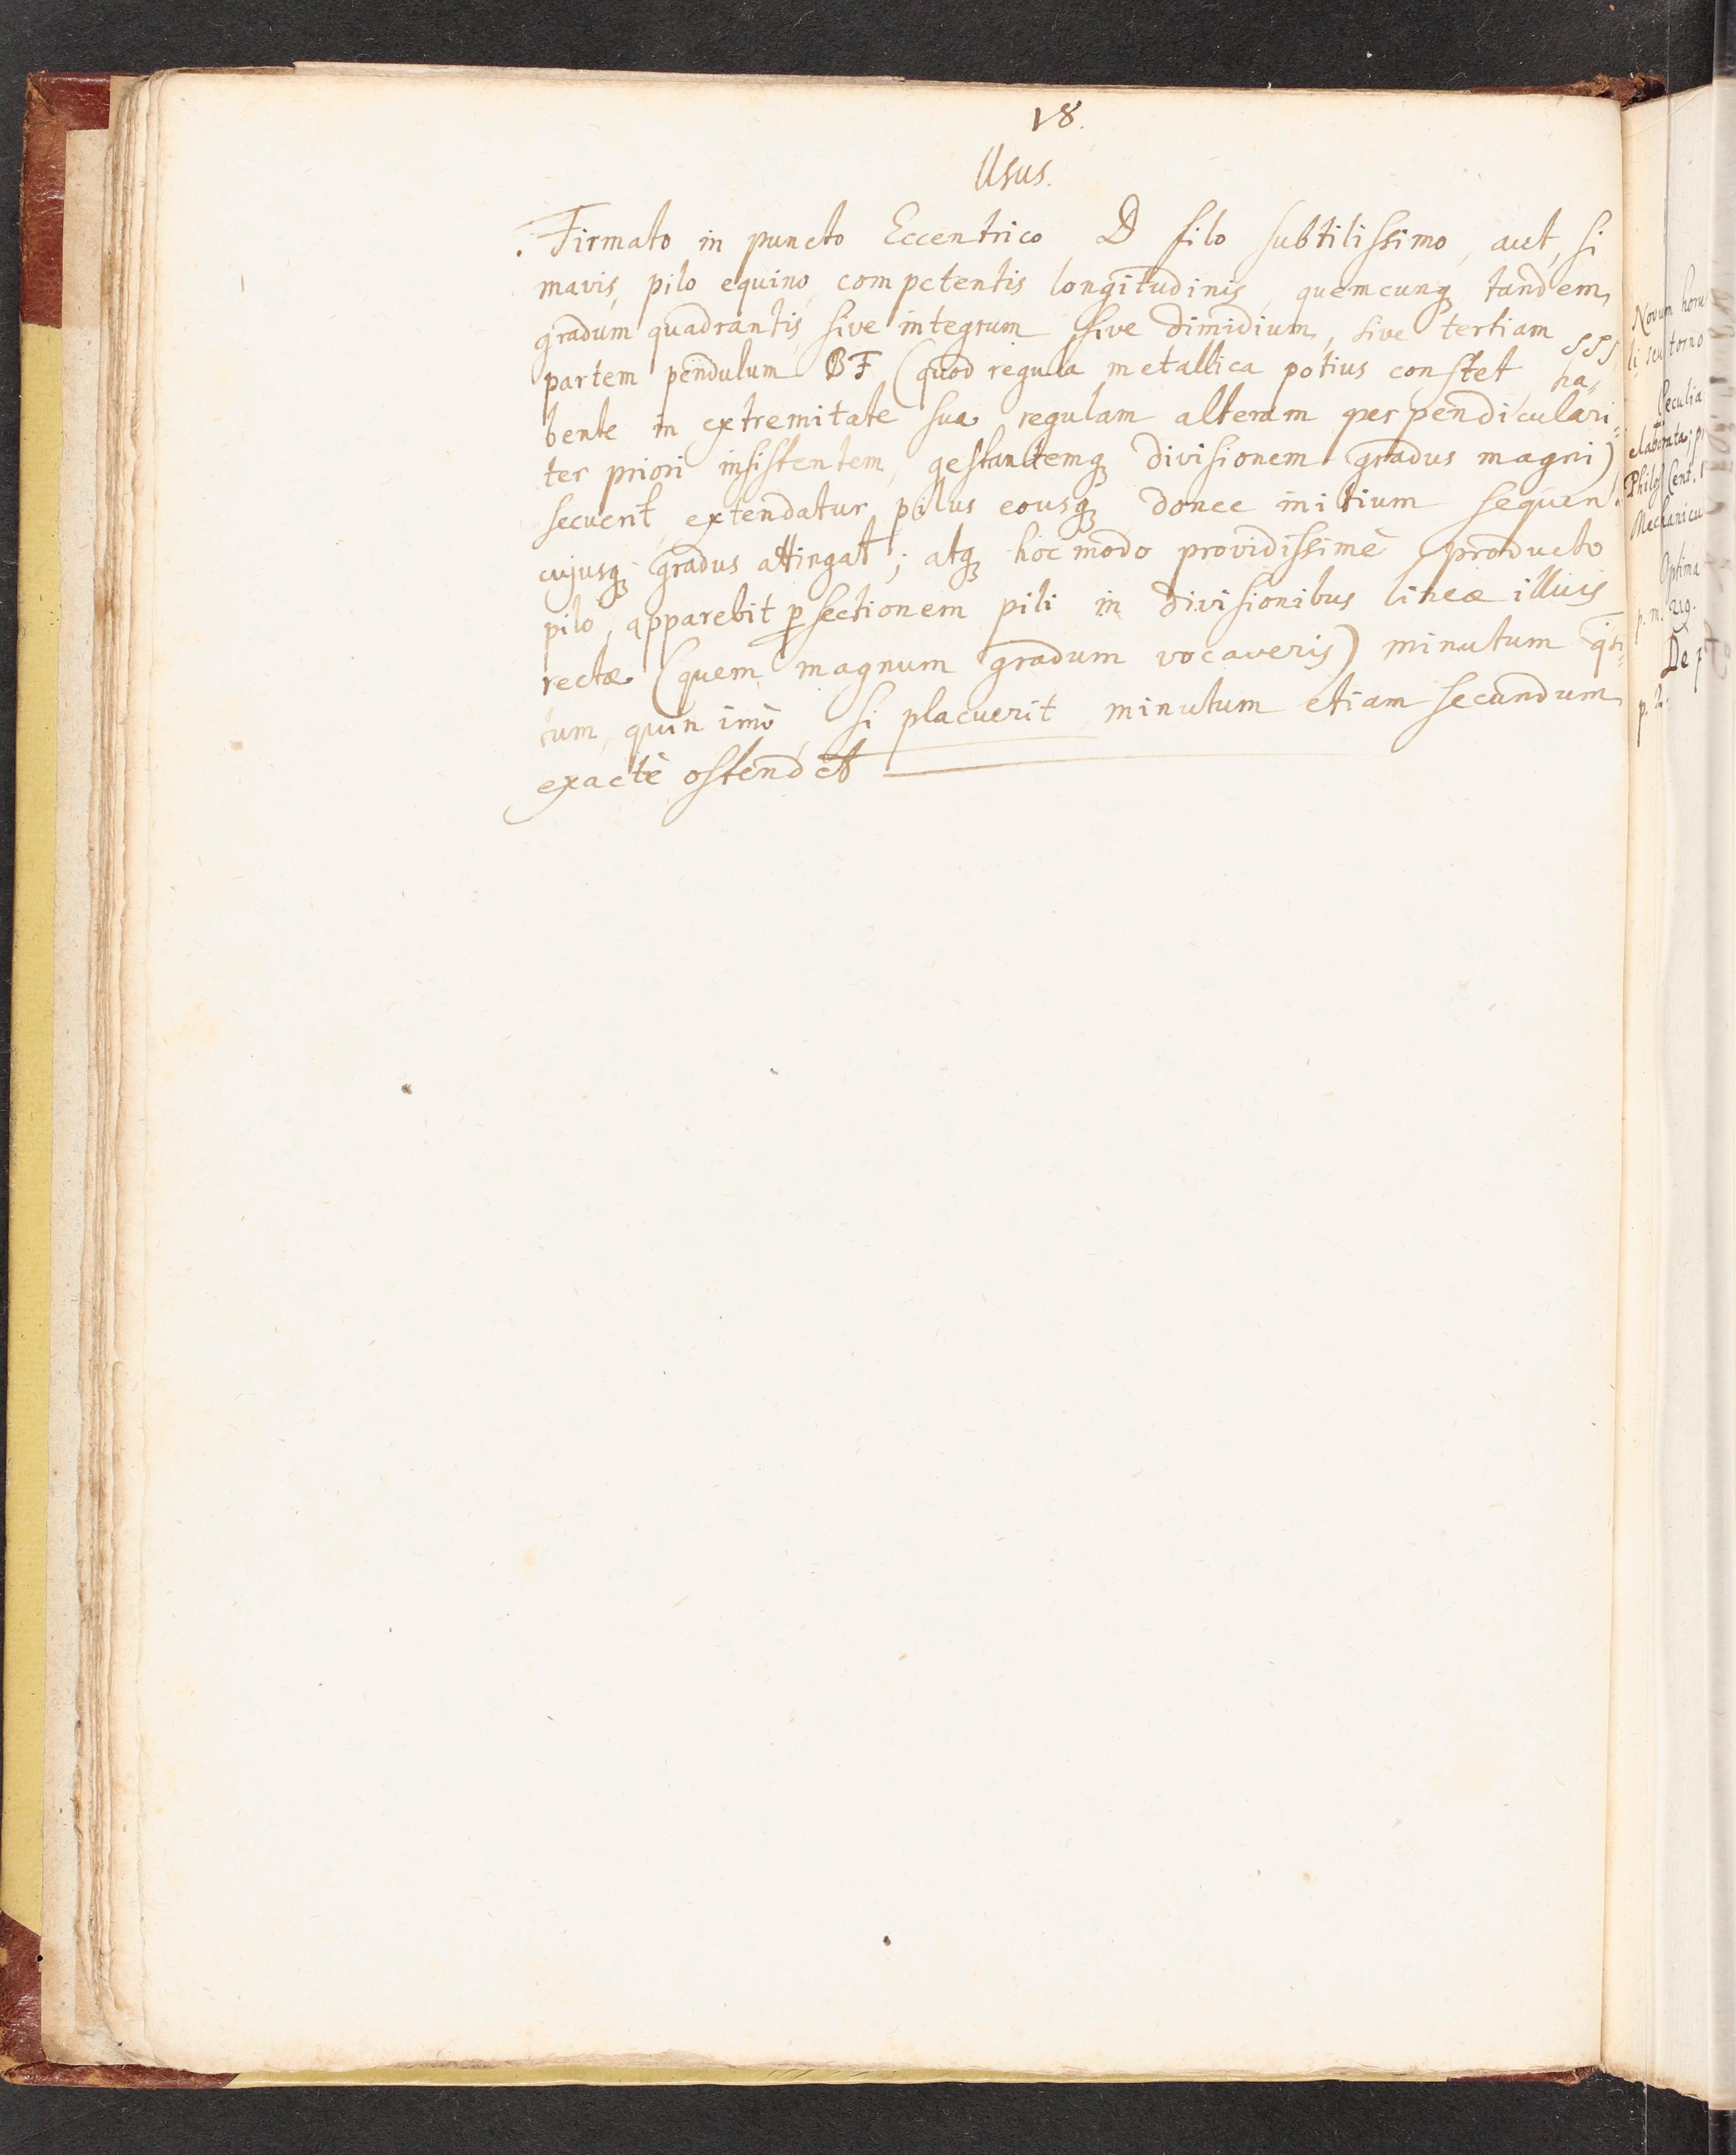 18.
Usus.
Firmato in puncto Eccentrico D filo subtilissimo, aut, si
mavis, pilo equino, competentis longitudinis, quemcunq tandem
gradum quadrantis, sive integrum, sive dimidium, sive tertiam
partem pendulum BF (quod regula metallica potius constet ha„
bente in extremitate sua regulam alteram perpendiculari„
ter priori insistentem, gestantemq divisionem gradus magni)
secuerit, extendatur pilus eousq donec initium sequen:
cujusq gradus attingat; atq hoc modo providissimè producto
pilo, apparebit p sectionem pili in divisionibus lineæ illius
rectæ (quem magnum gradum vocaveris) minutum
tum, quin imò, si placuerit, minutum etiam secundum
exactè ostendet
Novum
li, seu torno
Peculia
elaborata; p
Philos Cent.
Mechanicu
Optima
p. m. 219.
De p
p. 12.